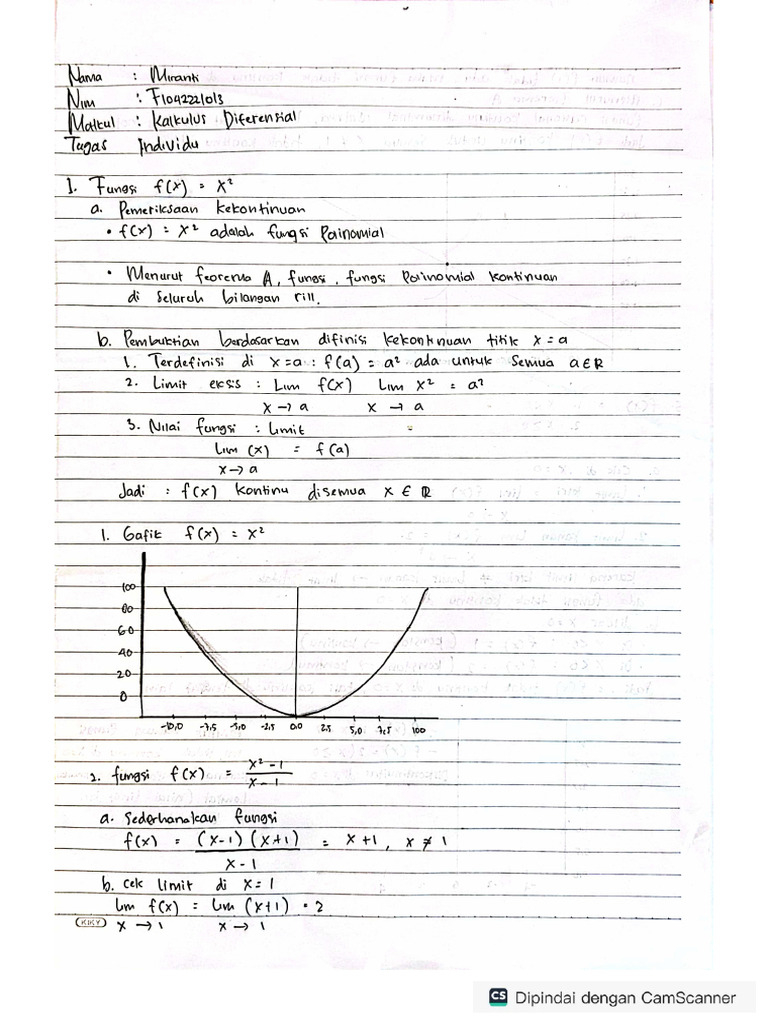 Nama : Miranti
Nim : F1042221013
Matkul : Kalkulus Diferensial
Tugas Individu
1. Fungsi f(x) = x²
a. Pemeriksaan kekontinuan
• f(x) = x² adalah fungsi Poinomial
• Menurut teorema A, fungsi, fungsi Poinomial kontinuan
di seluruh bilangan rill.
b. Pembuktian berdasarkan difinisi kekontinuan titik x = a
1. Terdefinisi di x = a : f(a) = a² ada untuk semua a ∈ R
2. Limit eksis : Lim f(x) Lim x² = a²
x → a x → a
3. Nilai fungsi : limit
Lim (x) = f(a)
x → a
Jadi : f(x) kontinu disemua x ∈ R
1. Gafik f(x) = x²
100
80
60
40
20
0
-10,0 -7,5 -5,0 -2,5 0,0 2,5 5,0 7,5 100
2. fungsi f(x) = x² - 1
x - 1
a. Sederhanakan fungsi
f(x) = (x-1) (x+1) = x+1, x ≠ 1
x - 1
b. cek limit di x = 1
lim f(x) = lim (x+1) = 2
KIKY x → 1 x → 1
CS Dipindai dengan CamScanner